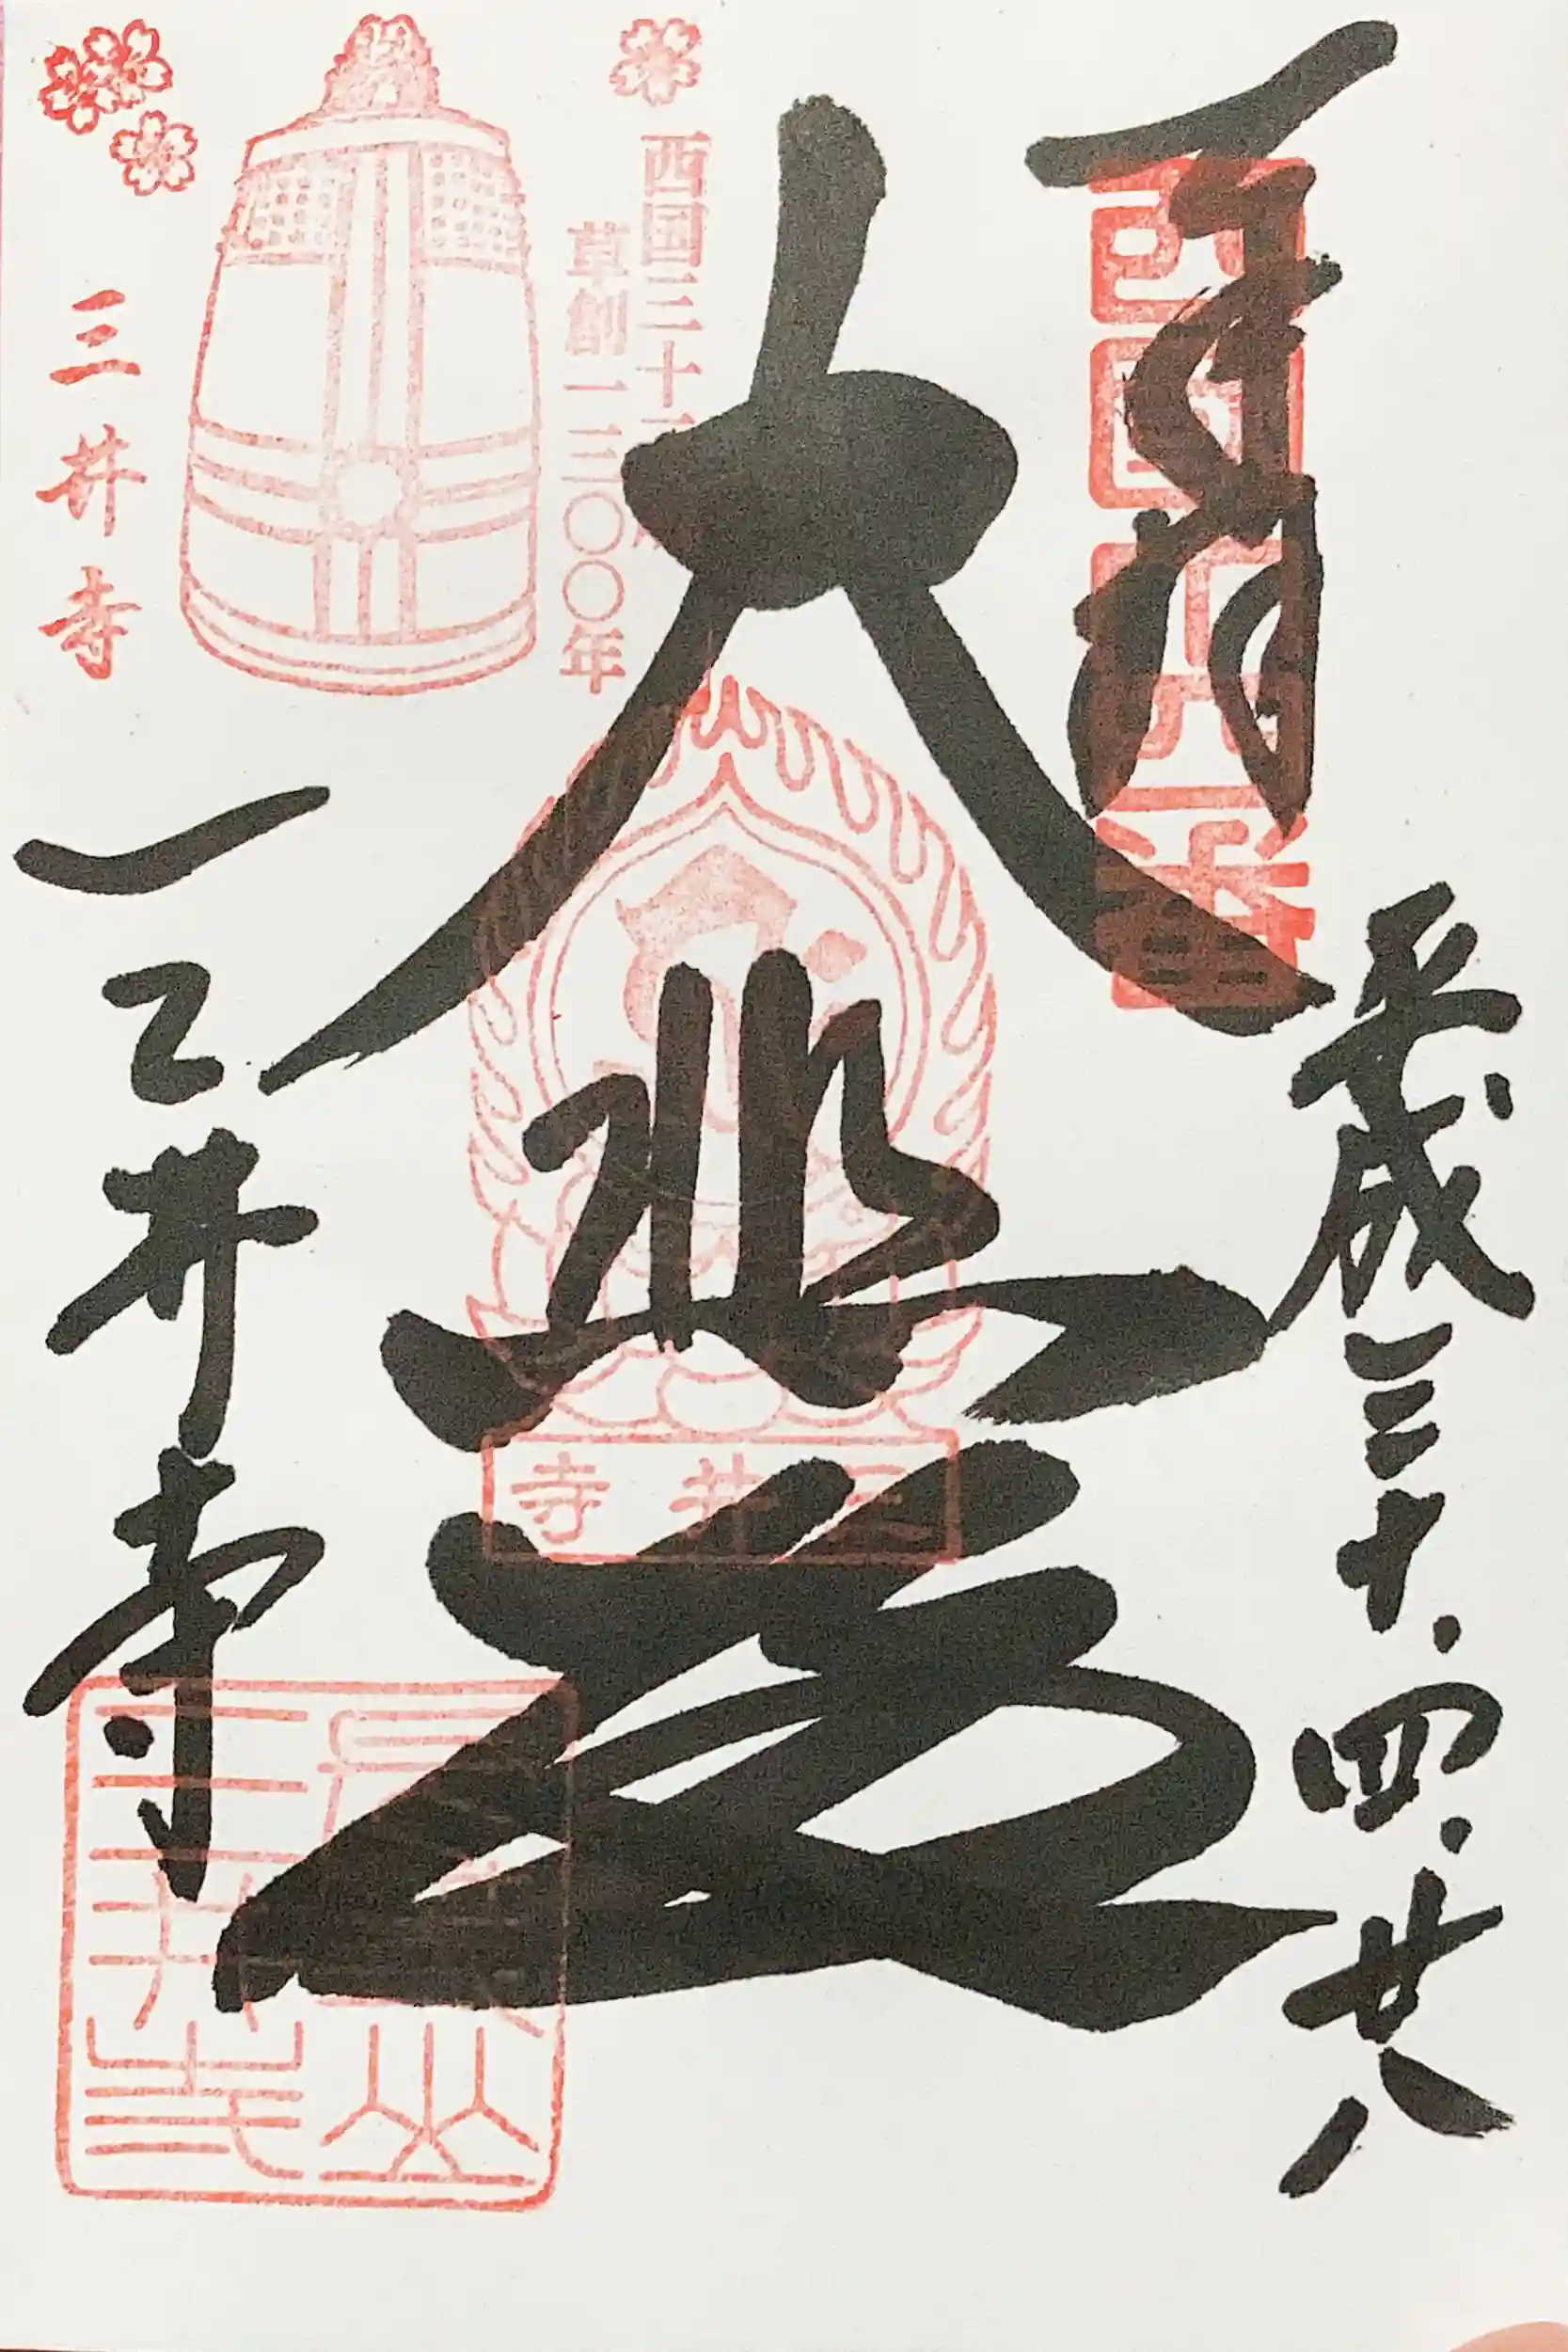 奉拝
西国十四番
平成三十.四.廿八
大悲殿
西国三十三所
草創一三〇〇年
三井寺
三井寺
三井寺
長等山
三井寺